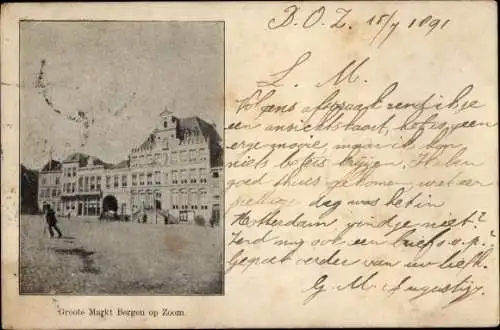 B. O. Z. 15/7 1891
L. M.
Volgens afspraak zend ik je
een ansichtskaart, het is geen
erge mooie, maar ik kon
niets beters krijgen. Ben
goed thuis gekomen, wat een
dag was het in
Rotterdam vindje niet?
Zend mij ook een briefk. s.v.p.?
Gegroet verder van uw liefh.
G. M. Augustijn
Groote Markt Bergen op Zoom